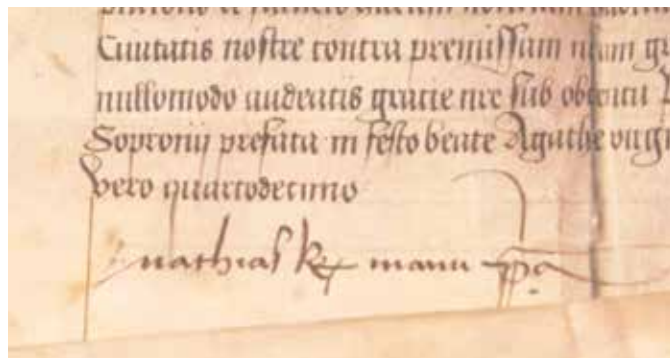 Ciuitatis nostre contra premissam nram
nullomodo audeatis gratie nre sub obtentu
Sopronij prefata in festo beate Agathe virgi
vero quartodecimo
mathias Rx manu ppa